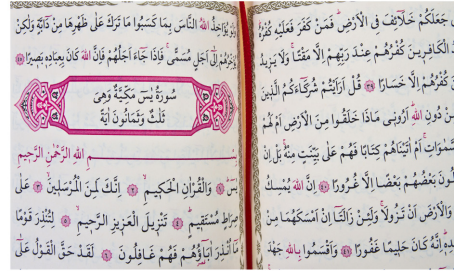 جَعَلَكُمْ خَلَٓائِفَ فِى الْاَرْضِۜ فَمَنْ كَفَرَ فَعَلَيْهِ كُفْرُهُ
الْكَافِر۪ينَ كُفْرُهُمْ عِنْدَ رَبِّهِمْ اِلَّا مَقْتًاۚ وَلَا يَز۪يدُ
كُفْرُهُمْ اِلَّا خَسَارًا ﴿٣٩﴾ قُلْ اَرَاَيْتُمْ شُرَكَٓاءَكُمُ الَّذ۪ينَ
مِنْ دُونِ اللّٰهِۜ اَرُون۪ى مَاذَا خَلَقُوا مِنَ الْاَرْضِ اَمْ لَهُمْ
سَّمٰوَاتِۚ اَمْ اٰتَيْنَاهُمْ كِتَابًا فَهُمْ عَلٰى بَيِّنَتٍ مِنْهُۚ بَلْ اِنْ
ونَ بَعْضُهُمْ بَعْضًا اِلَّا غُرُورًا ﴿٤٠﴾ اِنَّ اللّٰهَ يُمْسِكُ
وَالْاَرْضَ اَنْ تَزُولَاۚ وَلَئِنْ زَالَتَٓا اِنْ اَمْسَكَهُمَا مِنْ
دِه۪ۜ اِنَّهُ كَانَ حَل۪يمًا غَفُورًا ﴿٤١﴾ وَاَقْسَمُوا بِاللّٰهِ جَهْدَ
وَلَوْ يُؤَاخِذُ اللّٰهُ النَّاسَ بِمَا كَسَبُوا مَا تَرَكَ عَلٰى ظَهْرِهَا مِنْ دَٓابَّةٍ وَلٰكِنْ
يُؤَخِّرُهُمْ اِلٰٓى اَجَلٍ مُسَمًّىۚ فَاِذَا جَٓاءَ اَجَلُهُمْ فَاِنَّ اللّٰهَ كَانَ بِعِبَادِه۪ بَص۪يرًا ﴿٤٥﴾
سُورَةُ يٰسٓ مَكِّيَّةٌ وَهِىَ
ثَلٰثٌ وَثَمَانُونَ اٰيَةً
بِسْمِ اللّٰهِ الرَّحْمٰنِ الرَّح۪يمِ
يٰسٓ ﴿١﴾ وَالْقُرْاٰنِ الْحَك۪يمِ ﴿٢﴾ اِنَّكَ لَمِنَ الْمُرْسَل۪ينَ ﴿٣﴾ عَلٰى
صِرَاطٍ مُسْتَق۪يمٍ ﴿٤﴾ تَنْز۪يلَ الْعَز۪يزِ الرَّح۪يمِ ﴿٥﴾ لِتُنْذِرَ قَوْمًا
مَٓا اُنْذِرَ اٰبَٓاؤُهُمْ فَهُمْ غَافِلُونَ ﴿٦﴾ لَقَدْ حَقَّ الْقَوْلُ عَلٰٓى